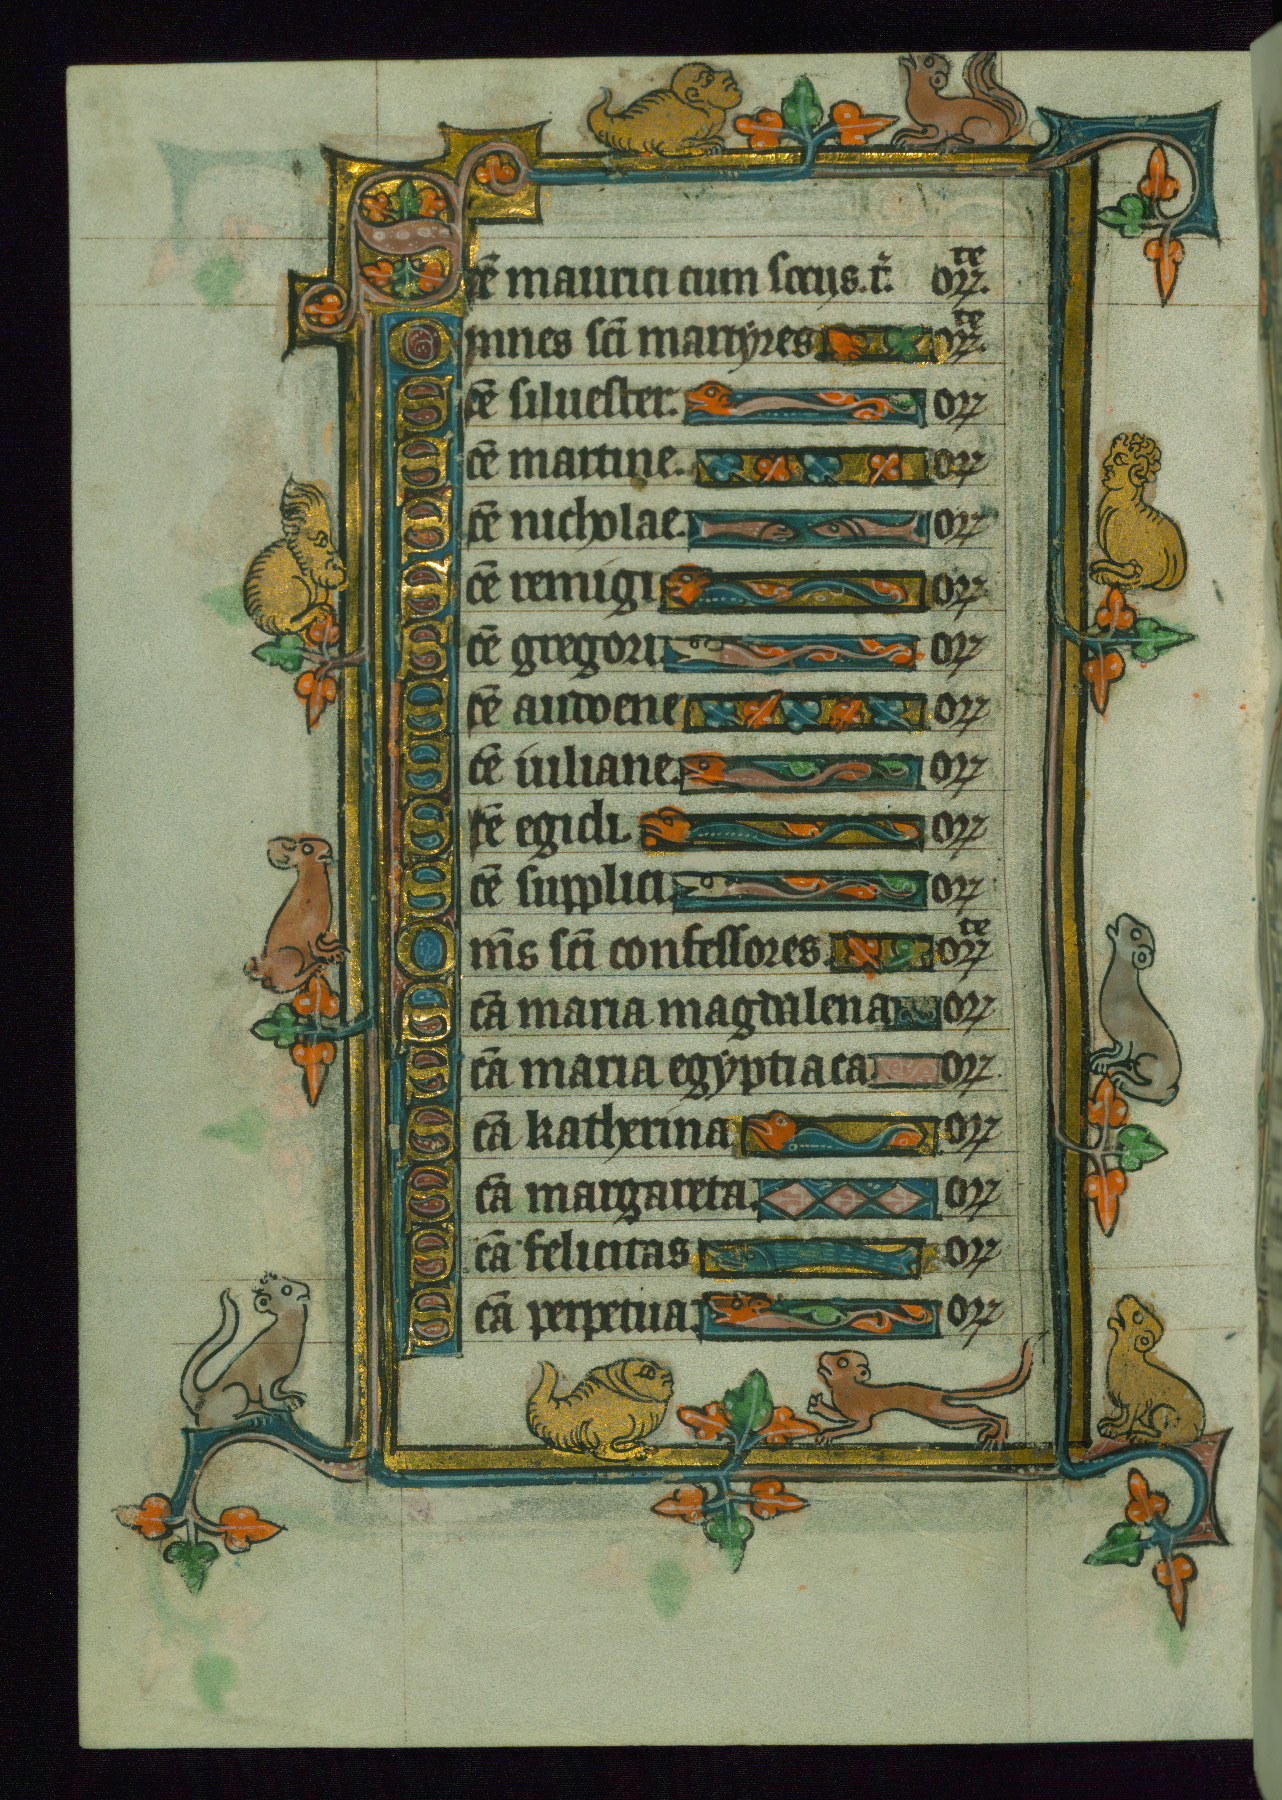 Scē maurici cum sociis t̄. or̄ate.
Omnes sc̄i martyres orate.
Scē siluester. or̄
Scē martine. or̄
Scē nicholae. or̄
Scē remigii or̄
Scē gregori or̄
Scē audoene or̄
Scē iuliane. or̄
Scē egidi. or̄
Scē supplici. or̄
Om̄s sc̄i confessores. orate
Sca̅ maria magdalena or̄
Sca̅ maria egyptiaca or̄
Sca̅ katherina or̄
Sca̅ margareta. or̄
Sca̅ felicitas or̄
Sca̅ perpetua. or̄